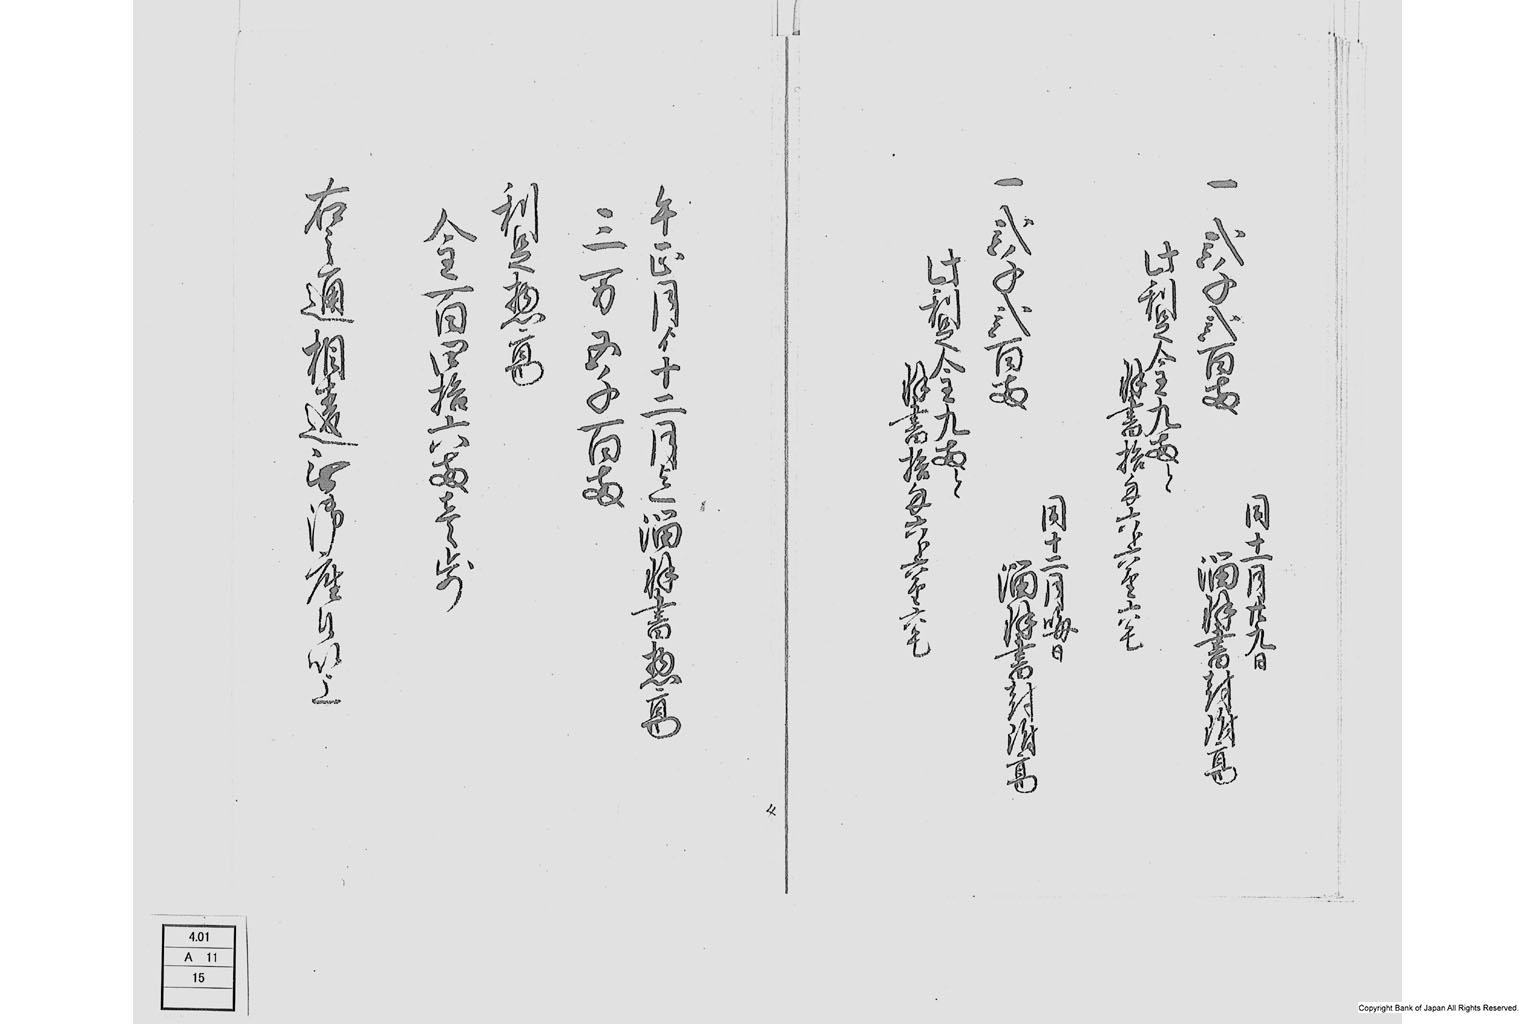 同十一月廿九日
一 弐千弐百両 溜預書封附高
此利足金九両と
預書拾匁六分六厘六毛
同十二月晦日
一 弐千弐百両 溜預書封附高
此利足金九両と
預書拾匁六分六厘六毛
午正月ゟ十二月迄溜預書惣高
三万五千百両
利足惣高
金百四拾六両壱歩
右之通相違無御座候以上
4
4.01
A 11
15
Copyright Bank of Japan All Rights Reserved.